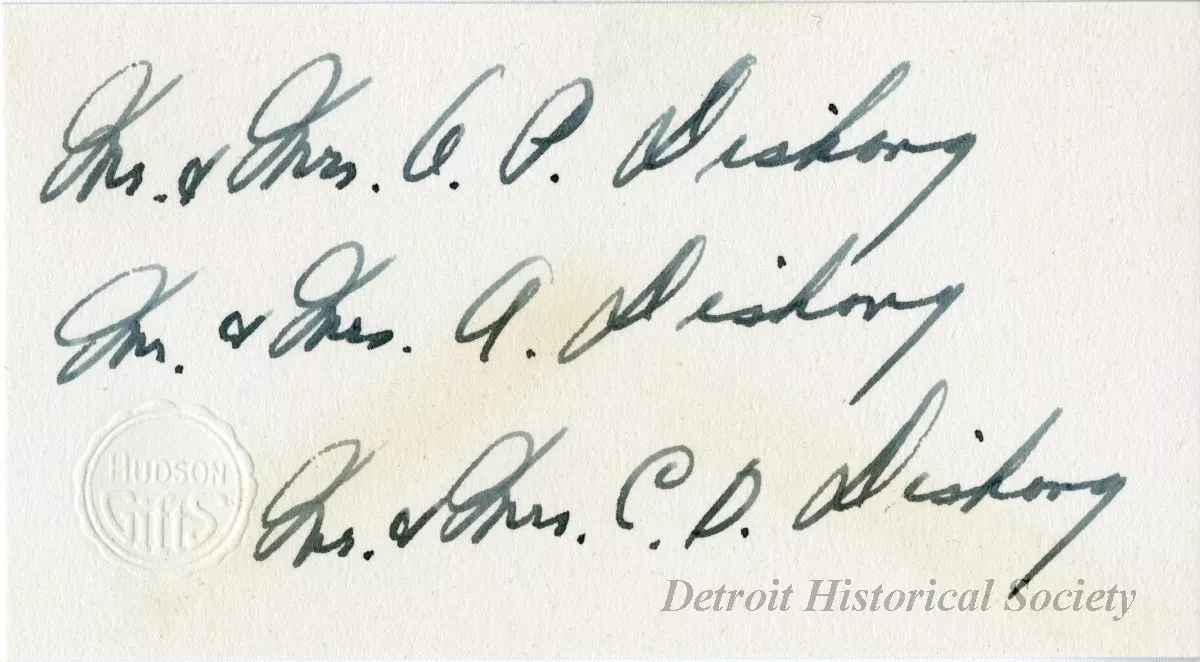 Mr. & Mrs. O. P. Dishong
Mr. & Mrs. A. Dishong
HUDSON
Gifts
Mr. & Mrs. C. D. Dishong
Detroit Historical Society